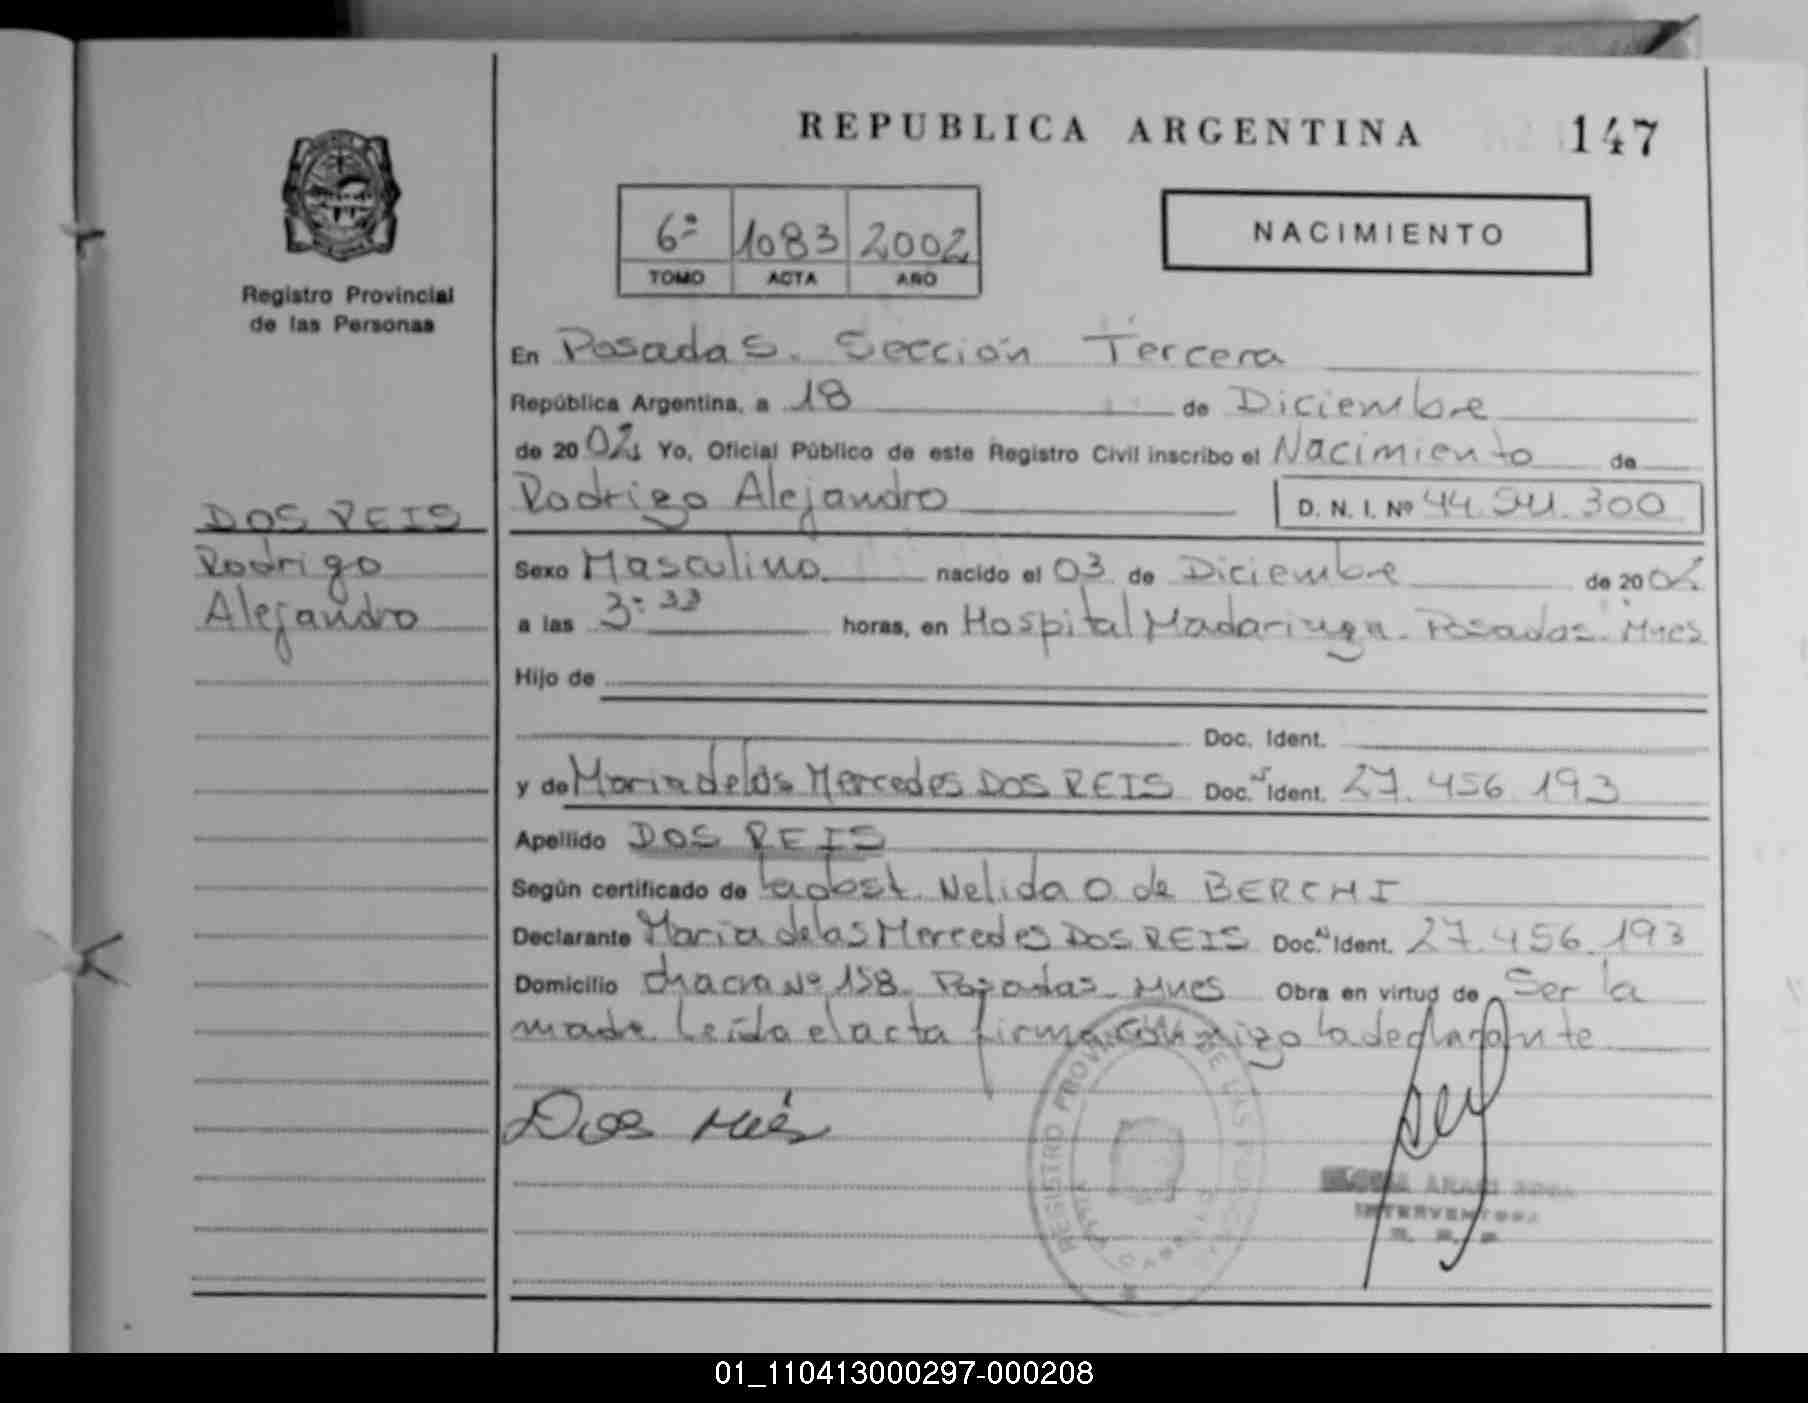 REPUBLICA ARGENTINA 147
Registro Provincial
de las Personas
6º 1083 2002
TOMO ACTA AÑO
NACIMIENTO
En Posadas. Sección Tercera
República Argentina, a 18 de Diciembre
de 2002 Yo, Oficial Público de este Registro Civil inscribo el Nacimiento de
Rodrigo Alejandro D. N. I. Nº 44.541.300
DOS REIS
Rodrigo
Alejandro
Sexo Masculino nacido el 03 de Diciembre de 2002
a las 3:33 horas, en Hospital Madariaga. Posadas. Mnes
Hijo de
Doc. Ident.
y de Maria de las Mercedes DOS REIS Doc. Ident. 27.456.193
Apellido DOS REIS
Según certificado de la obst. Nelida O. de BERCHI
Declarante Maria de las Mercedes DOS REIS Doc. Ident. 27.456.193
Domicilio chacra Nº 158. Posadas. Mnes Obra en virtud de Ser la
madre. Leída el acta firma conmigo la declarante
Dos Reis
REGISTRO PROVINCIAL DE LAS PERSONAS
INTERVENTORA
01_110413000297-000208